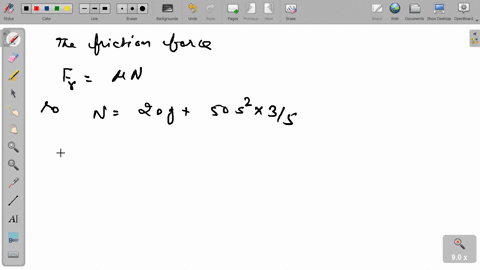 Status
Backgrounds
Undo
Redo
Pages
Previous
Next
Erase
Board
Web
Documents
Show Desktop
OpenBoard
The friction force
Fr = μN
so N = 20g + 50 s² × 3/5
+
9.0 x